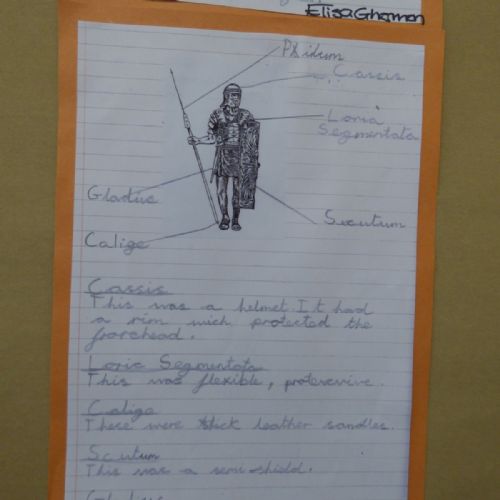 Elisa Ghamon
Pxidum
Cassis
Loria
Segmentata
Gladiue
Scutum
Calige
Cassis
This was a helmet. It had
a rim wich protected the
forehead.
Loria Segmentata
This was flexible, protercvive.
Calige
These were thick leather sandles.
Scutum
This was a semi-shield.